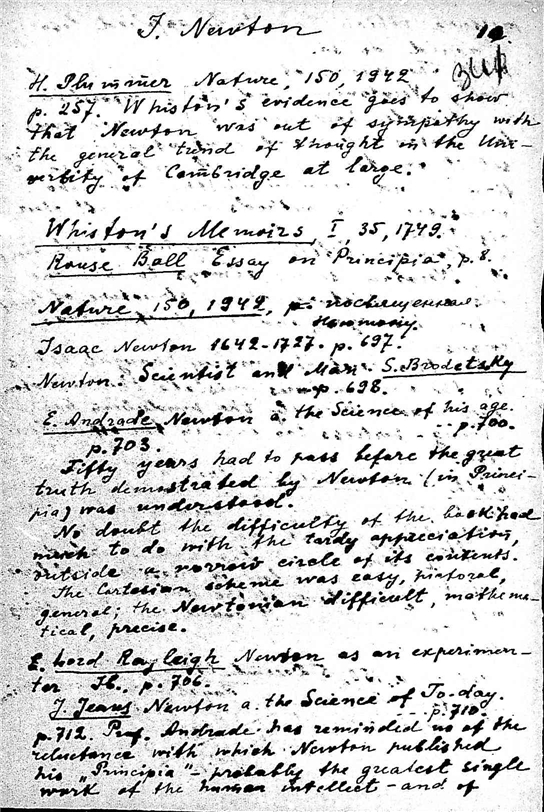 I. Newton
H. Plummer Nature, 150, 1942
p. 257. Whiston's evidence goes to show
that Newton was out of sympathy with
the general trend of thought in the Uni-
versity of Cambridge at large."
Whiston's Memoirs, I, 35, 1749.
Rouse Ball Essay on Principia, p. 8.
Nature 150, 1942, посвященная
Ньютону.
Isaac Newton 1642-1727. p. 697.
Newton: Scientist and Man. S. Brodetsky
p. 698.
E. Andrade Newton a. the Science of his age.
p. 700.
p. 703.
Fifty years had to pass before the great
truth demostrated by Newton (in Princi-
pia) was understood.
No doubt the difficulty of the book had
much to do with the tardy appreciation,
outside a norrow circle of its contents.
The Cartesian scheme was easy, pictoral,
general; the Newtonian difficult, mathema-
tical, precise.
Lord Rayleigh Newton as an experimen-
ter Ib., p. 706.
J. Jeans Newton a. the Science of To-day.
p. 710.
p. 712. Prof. Andrade has reminded us of the
reluctance with which Newton published
his „Principia" - probably the greatest single
work of the human intellect - and of